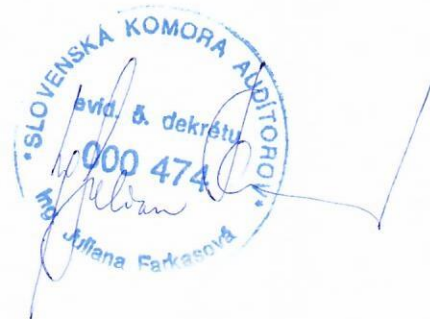 *SLOVENSKÁ KOMORA AUDÍTOROV*
evid. č. dekrétu
000 474
Ing. Juliana Farkasová